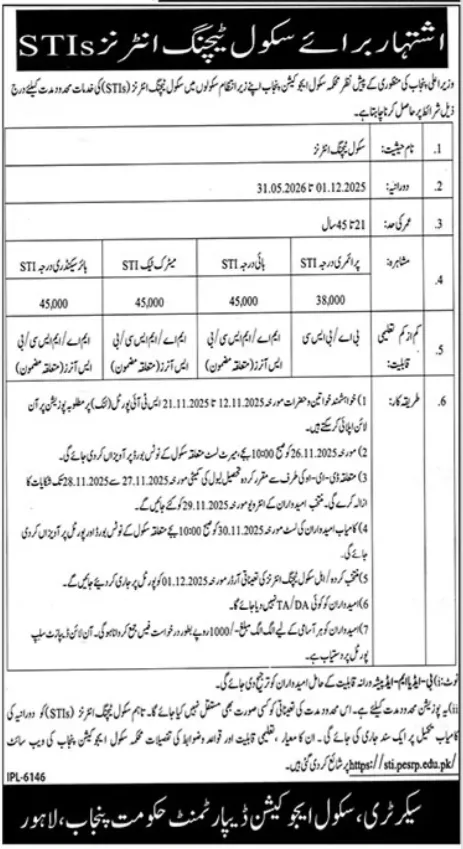 اشتہار برائے سکول ٹیچنگ انٹرنز STIs
وزیر اعلیٰ پنجاب کی منظوری کے پیش نظر محکمہ سکول ایجوکیشن پنجاب اپنے زیر انتظام سکولوں میں سکول ٹیچنگ انٹرنز (STIs) کی خدمات محدود مدت کیلئے درج
ذیل شرائط پر حاصل کرنا چاہتا ہے۔
1. نام حیثیت: سکول ٹیچنگ انٹرنز
2. دورانیہ: 01.12.2025 تا 31.05.2026
3. عمر کی حد: 21 تا 45 سال
4. مشاہرہ: پرائمری درجہ STI ہائی درجہ STI میٹرک ٹیک STI ہائر سیکنڈری درجہ STI
38,000 45,000 45,000 45,000
5. کم از کم تعلیمی بی اے/بی ایس سی ایم اے/ایم ایس سی/بی ایم اے/ایم ایس سی/بی ایم اے/ایم ایس سی/بی
قابلیت: ایس آنرز (متعلقہ مضمون) ایس آنرز (متعلقہ مضمون) ایس آنرز (متعلقہ مضمون)
6. طریقہ کار: 1) خواہشمند خواتین و حضرات مورخہ 12.11.2025 تا 21.11.2025 ایس ٹی آئی پورٹل (لنک) پر مطلوبہ پوزیشن پر آن
لائن اپلائی کر سکتے ہیں۔
2) مورخہ 26.11.2025 کو صبح 10:00 بجے، میرٹ لسٹ متعلقہ سکول کے نوٹس بورڈ پر آویزاں کر دی جائے گی۔
3) متعلقہ ڈی-ای-او کی طرف سے مقرر کردہ تحصیل لیول کی کمیٹی مورخہ 27.11.2025 سے 28.11.2025 تک شکایات کا
ازالہ کرے گی۔ منتخب امیدواران کے انٹرویو مورخہ 29.11.2025 کو لئے جائیں گے۔
4) کامیاب امیدواران کی لسٹ مورخہ 30.11.2025 کو صبح 10:00 بجے متعلقہ سکول کے نوٹس بورڈ اور پورٹل پر آویزاں کر دی
جائے گی۔
5) منتخب کردہ/اہل سکول ٹیچنگ انٹرنز کی تعیناتی آرڈر مورخہ 01.12.2025 کو پورٹل پر جاری کر دیئے جائیں گے۔
6) امیدواران کو کوئی TA/DA نہیں دیا جائے گا۔
7) امیدواران کو ہر آسامی کے لیے الگ الگ مبلغ -/1000 روپے بطور درخواست فیس جمع کروانا ہوگی۔ آن لائن ڈیپازٹ سلپ
پورٹل پر دستیاب ہے۔
نوٹ: i) بی-ایڈ یا ایم-ایڈ پیشہ ورانہ قابلیت کے حامل امیدواران کو ترجیح دی جائے گی۔
ii) یہ پوزیشن محدود مدت کیلئے ہے۔ اس محدود مدت کی تعیناتی کو کسی صورت بھی مستقل نہیں کیا جائے گا۔ تاہم سکول ٹیچنگ انٹرنز (STIs) کو دورانیہ کی
کامیاب تکمیل پر ایک سند جاری کی جائے گی۔ ان کا معیار، تعلیمی قابلیت اور قواعد و ضوابط کی تفصیلات محکمہ سکول ایجوکیشن پنجاب کی ویب سائٹ
https://sti.pesrp.edu.pk/ پر شائع کر دی گئی ہیں۔
IPL-6146
سیکرٹری، سکول ایجوکیشن ڈیپارٹمنٹ حکومت پنجاب، لاہور